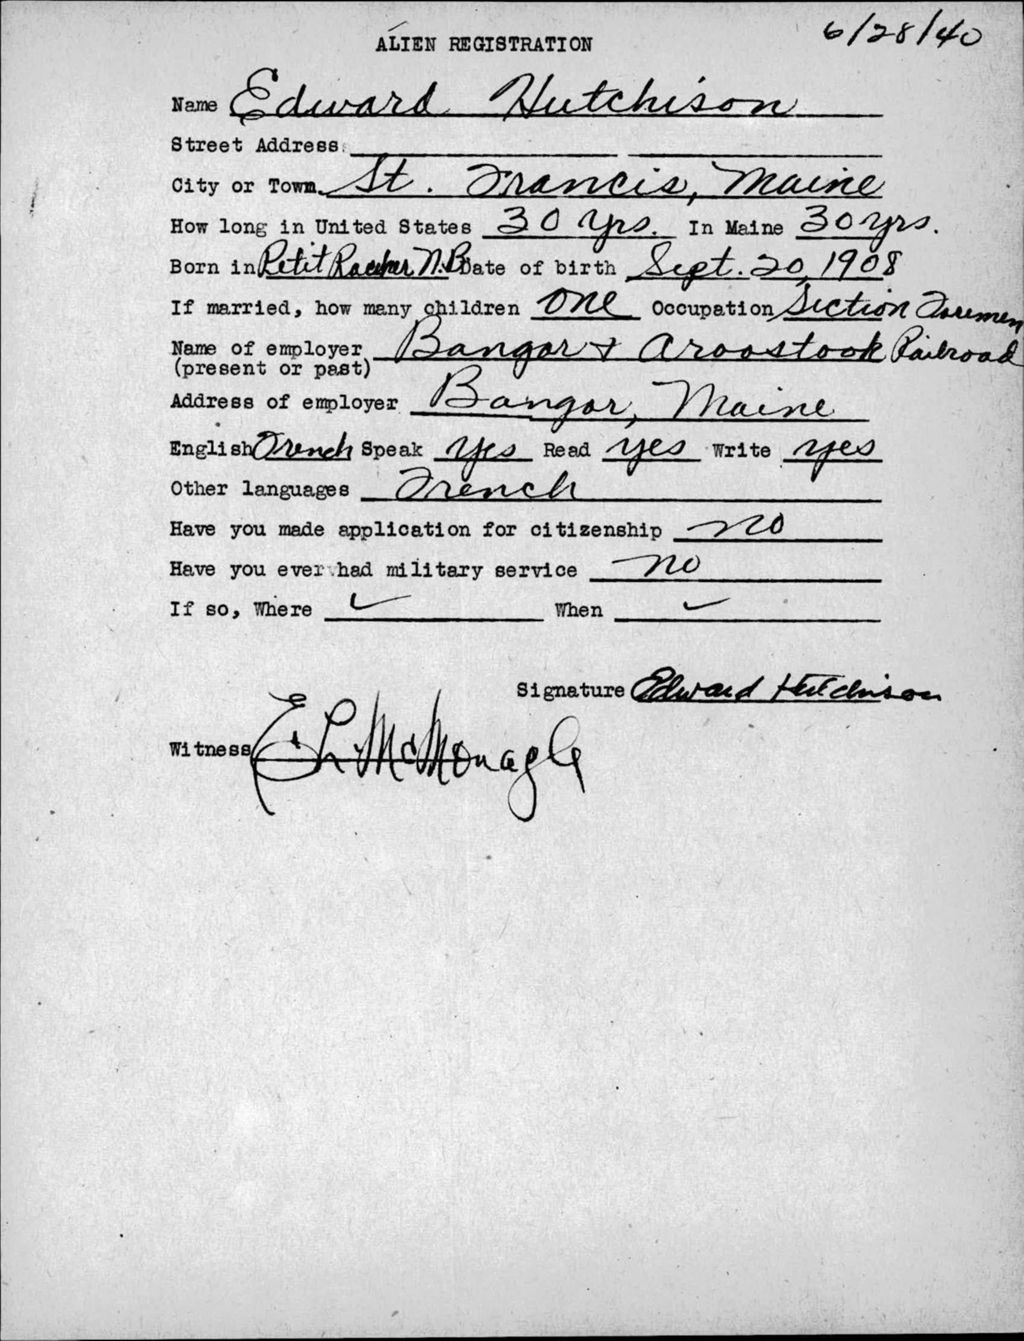 6/28/40
ALIEN REGISTRATION
Name Edward Hutchison
Street Address
City or Town St. Francis, Maine
How long in United States 30 yrs. In Maine 30 yrs.
Born in Petit Rocher N.B. Date of birth Sept. 20, 1908
If married, how many children one Occupation Section Foremen
Name of employer Bangor & Aroostook Railroad
(present or past)
Address of employer Bangor, Maine
English French Speak yes Read yes Write yes
Other languages French
Have you made application for citizenship no
Have you ever had military service no
If so, Where When
Signature Edward Hutchison
Witness E L McMonagle